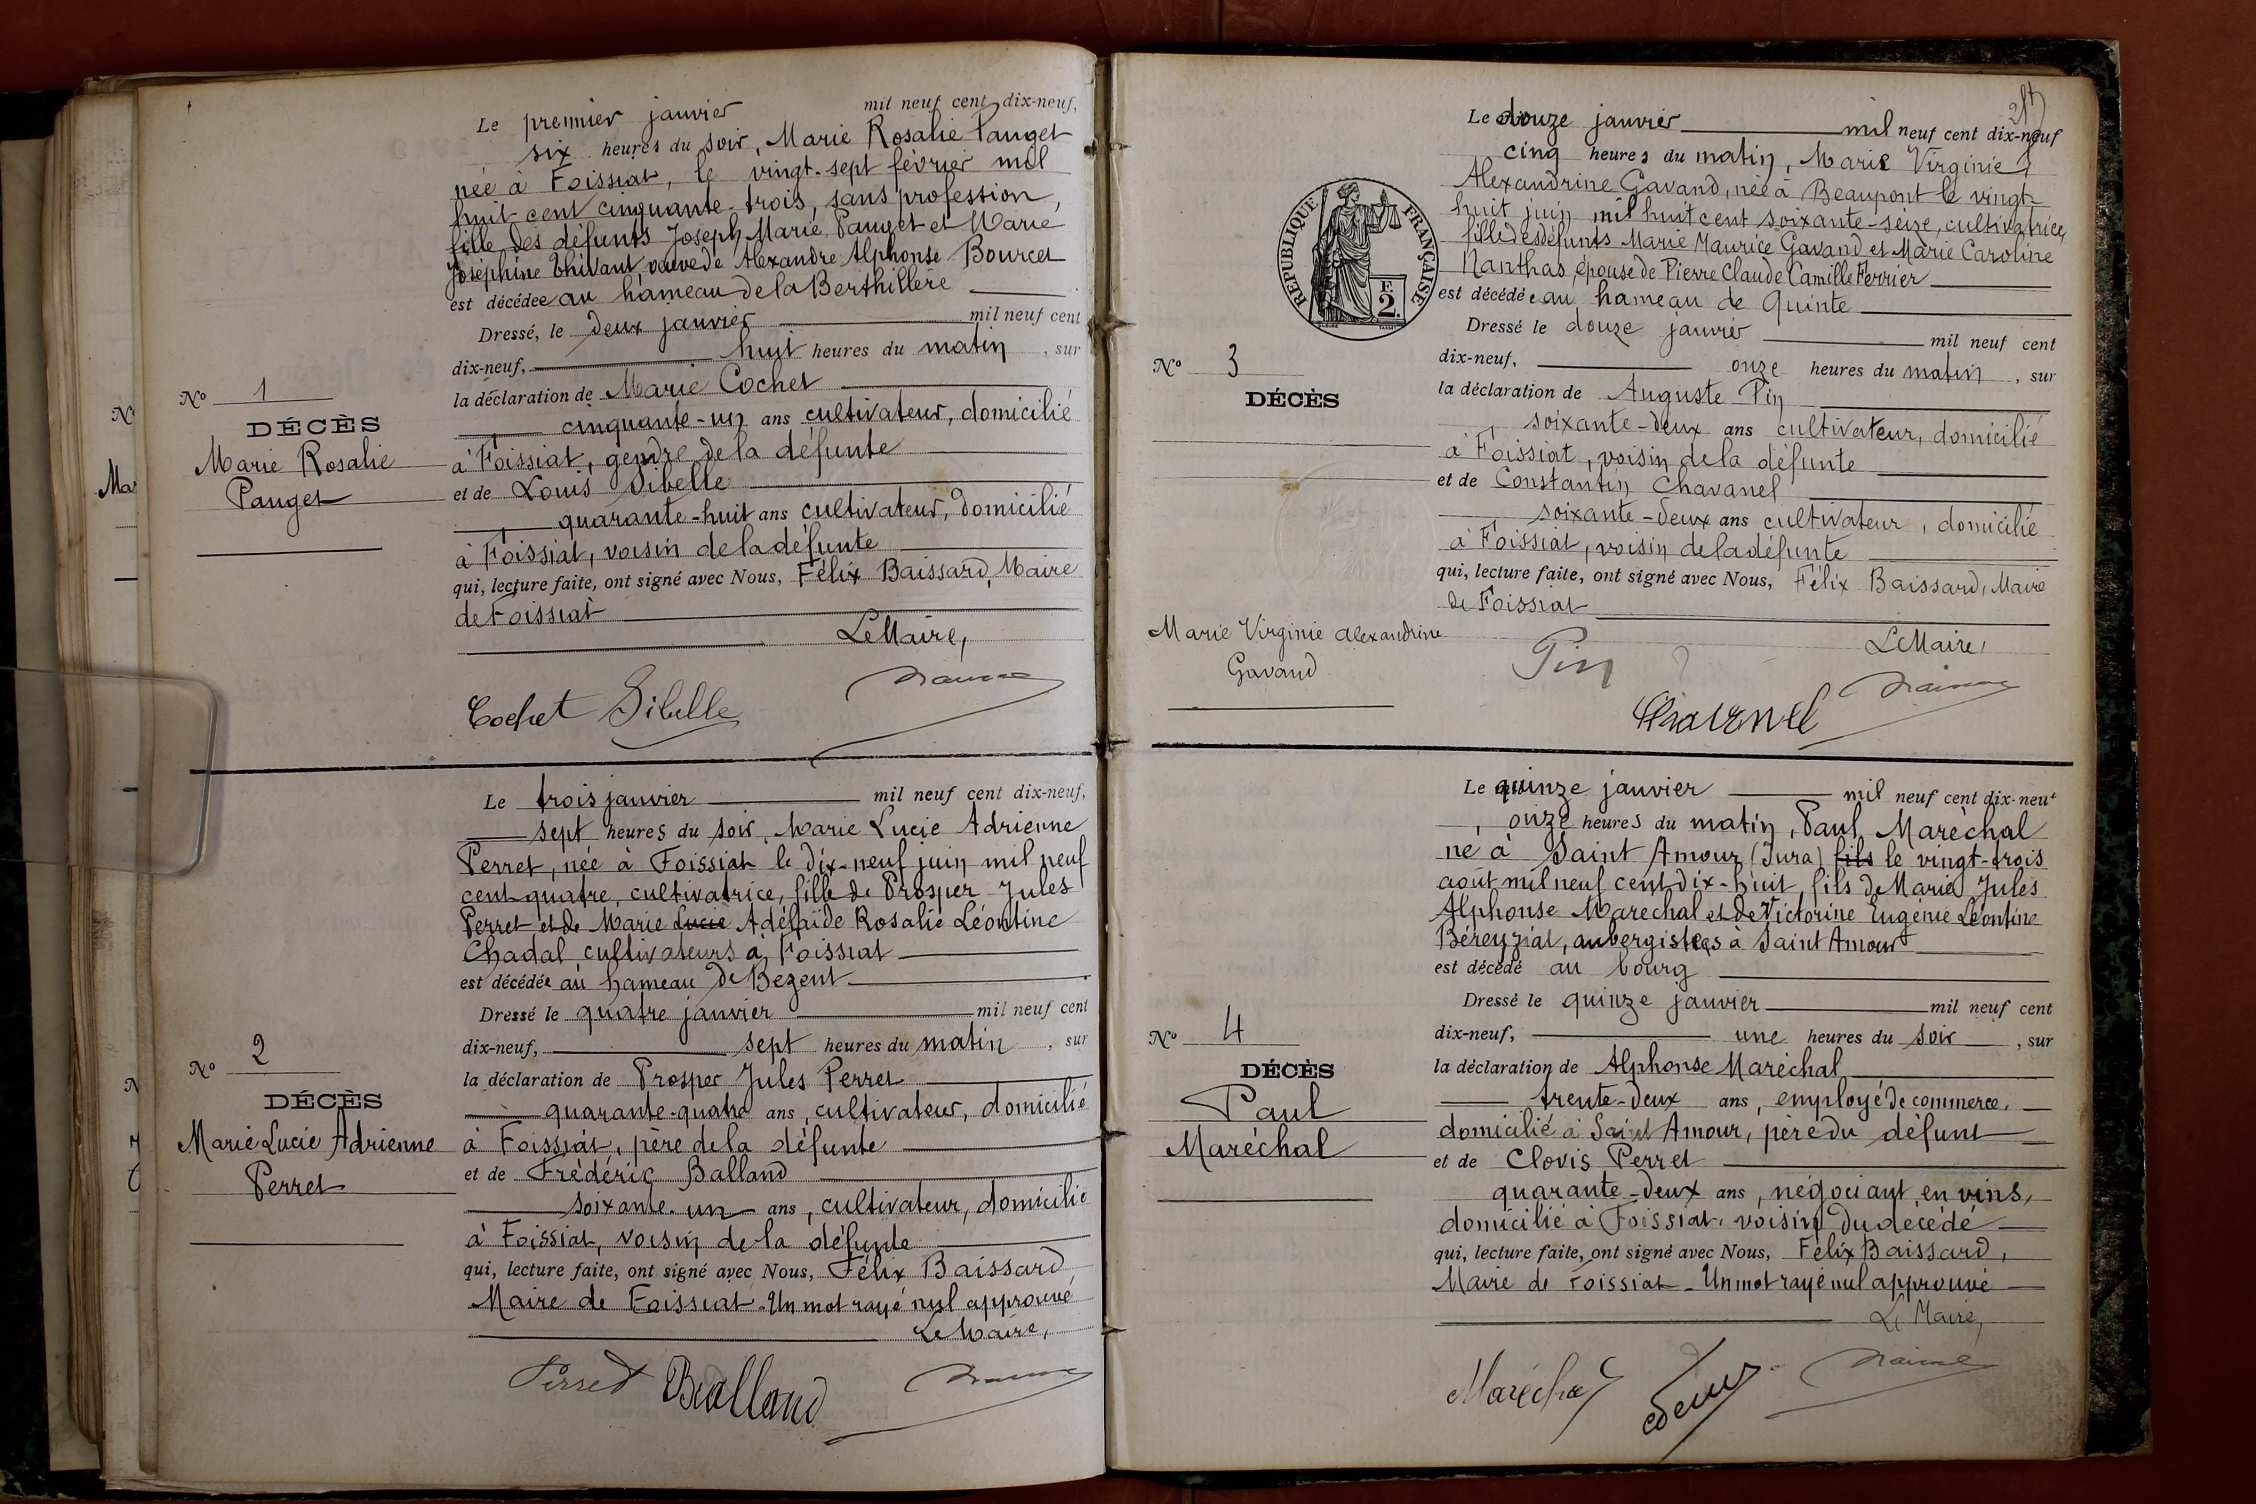 Le premier janvier mil neuf cent dix-neuf,
six heures du soir, Marie Rosalie Pauget
née à Foissiat, le vingt-sept février mil
huit cent cinquante-trois, sans profession,
fille des défunts Joseph Marie Pauget et Marie
Joséphine Thivant, veuve de Alexandre Alphonse Bourcet
est décédée au hameau de la Berthillère
Dressé, le deux janvier mil neuf cent
dix-neuf, huit heures du matin, sur
la déclaration de Marie Cochet
cinquante-un ans cultivateur, domicilié
à Foissiat, gendre de la défunte
et de Louis Sibelle
quarante-huit ans cultivateur, domicilié
à Foissiat, voisin de la défunte
qui, lecture faite, ont signé avec Nous, Félix Baissard, Maire
de Foissiat
Le Maire,
Cochet Sibelle
No 1
DÉCÈS
Marie Rosalie
Pauget
Le trois janvier mil neuf cent dix-neuf,
sept heures du soir, Marie Lucie Adrienne
Perret, née à Foissiat le dix-neuf juin mil neuf
cent quatre, cultivatrice, fille de Prosper Jules
Perret et de Marie Lucie Adélaïde Rosalie Léontine
Chadal cultivateurs à Foissiat
est décédée au hameau de Bezent
Dressé le quatre janvier mil neuf cent
dix-neuf, sept heures du matin, sur
la déclaration de Prosper Jules Perret
quarante-quatre ans, cultivateur, domicilié
à Foissiat, père de la défunte
et de Frédéric Balland
soixante-un ans, cultivateur, domicilié
à Foissiat, voisin de la défunte
qui, lecture faite, ont signé avec Nous, Félix Baissard,
Maire de Foissiat - Un mot rayé nul approuvé
Le Maire,
Perret Balland
No 2
DÉCÈS
Marie Lucie Adrienne
Perret
Le douze janvier mil neuf cent dix-neuf
cinq heures du matin, Marie Virginie
Alexandrine Gavand, née à Beaupont le vingt-
huit juin mil huit cent soixante-seize, cultivatrice,
fille des défunts Marie Maurice Gavand et Marie Caroline
Nanthas, épouse de Pierre Claude Camille Ferrier
est décédée au hameau de Quinte
Dressé le douze janvier mil neuf cent
dix-neuf, onze heures du matin, sur
la déclaration de Auguste Pin
soixante-deux ans cultivateur, domicilié
à Foissiat, voisin de la défunte
et de Constantin Chavanel
soixante-deux ans cultivateur, domicilié
à Foissiat, voisin de la défunte
qui, lecture faite, ont signé avec Nous, Félix Baissard, Maire
de Foissiat
Le Maire,
Pin
RÉPUBLIQUE FRANÇAISE
F. 2.
No 3
DÉCÈS
Marie Virginie Alexandrine
Gavand
Le quinze janvier mil neuf cent dix-neuf
, onze heures du matin, Paul Maréchal
né à Saint Amour (Jura) fils le vingt-trois
août mil neuf cent dix-huit, fils de Marie Jules
Alphonse Maréchal et de Victorine Eugénie Léontine
Béreyziat, aubergistes à Saint Amour
est décédé au bourg
Dressé le quinze janvier mil neuf cent
dix-neuf, une heures du soir, sur
la déclaration de Alphonse Maréchal
trente-deux ans, employé de commerce,
domicilié à Saint Amour, père du défunt
et de Clovis Perret
quarante-deux ans, négociant en vins,
domicilié à Foissiat, voisin du décédé
qui, lecture faite, ont signé avec Nous, Félix Baissard,
Maire de Foissiat - Un mot rayé nul approuvé
Le Maire,
Maréchal
No 4
DÉCÈS
Paul
Maréchal